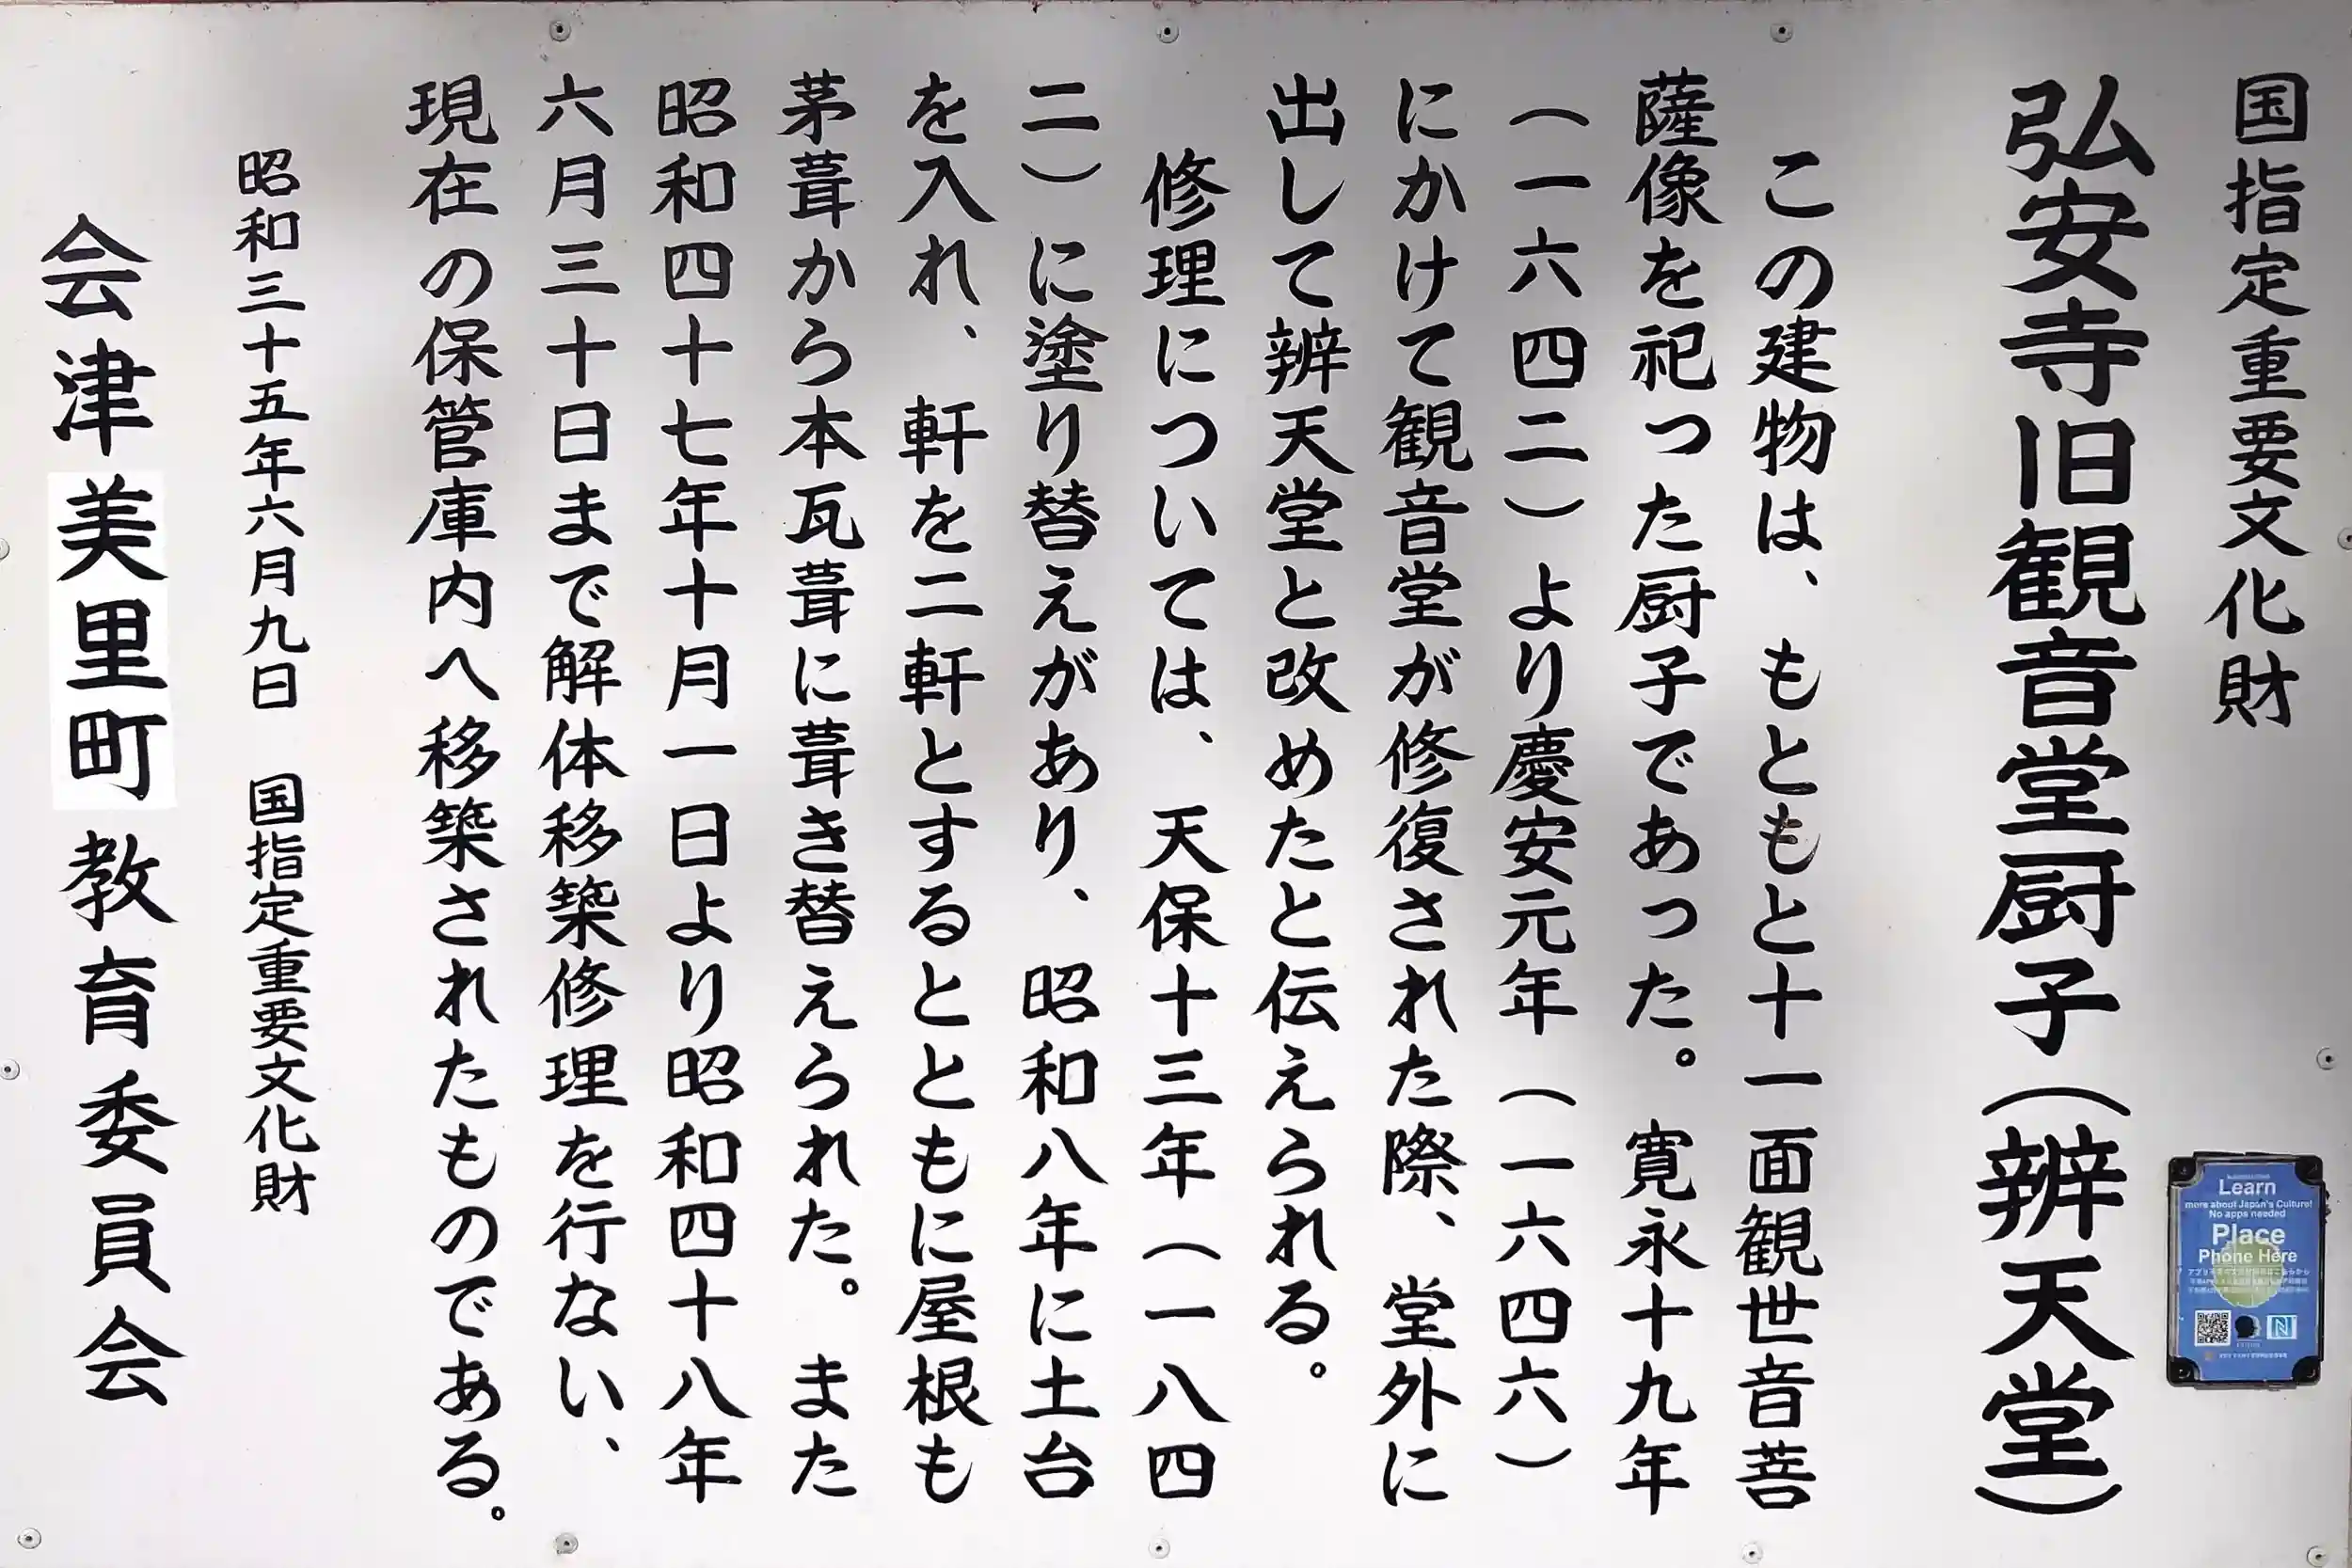 国指定重要文化財
弘安寺旧観音堂厨子(辨天堂)
この建物は、もともと十一面観世音菩
薩像を祀った厨子であった。寛永十九年
(一六四二)より慶安元年(一六四六)
にかけて観音堂が修復された際、堂外に
出して辨天堂と改めたと伝えられる。
修理については、天保十三年(一八四
二)に塗り替えがあり、昭和八年に土台
を入れ、軒を二軒とするとともに屋根も
茅葺から本瓦葺に葺き替えられた。また
昭和四十七年十月一日より昭和四十八年
六月三十日まで解体移築修理を行ない、
現在の保管庫内へ移築されたものである。
昭和三十五年六月九日 国指定重要文化財
会津美里町教育委員会
Learn
more about Japan's Culture!
No apps needed
Place
Phone Here